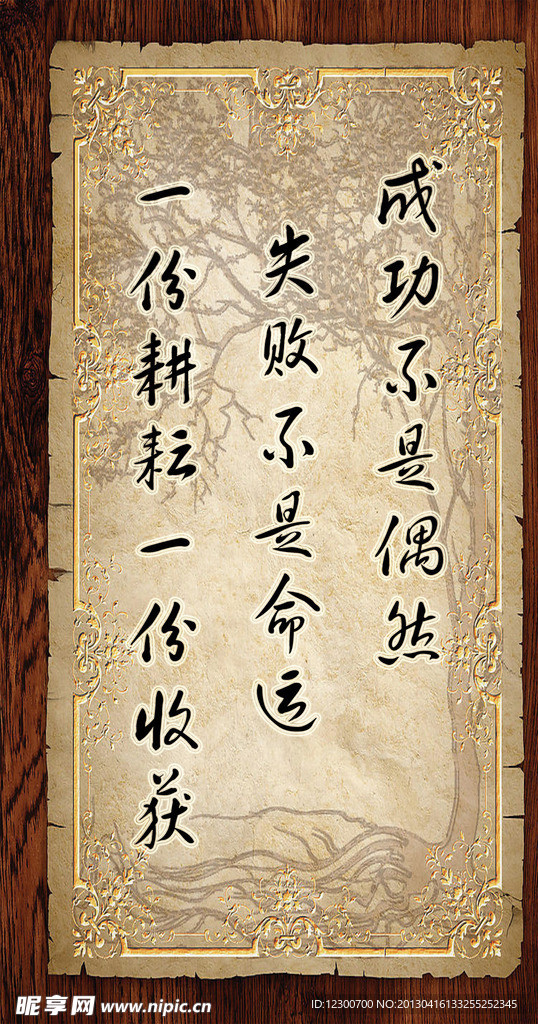 成功不是偶然
失败不是命运
一份耕耘一份收获
昵享网 www.nipic.cn
ID:12300700 NO:20130416133255252345